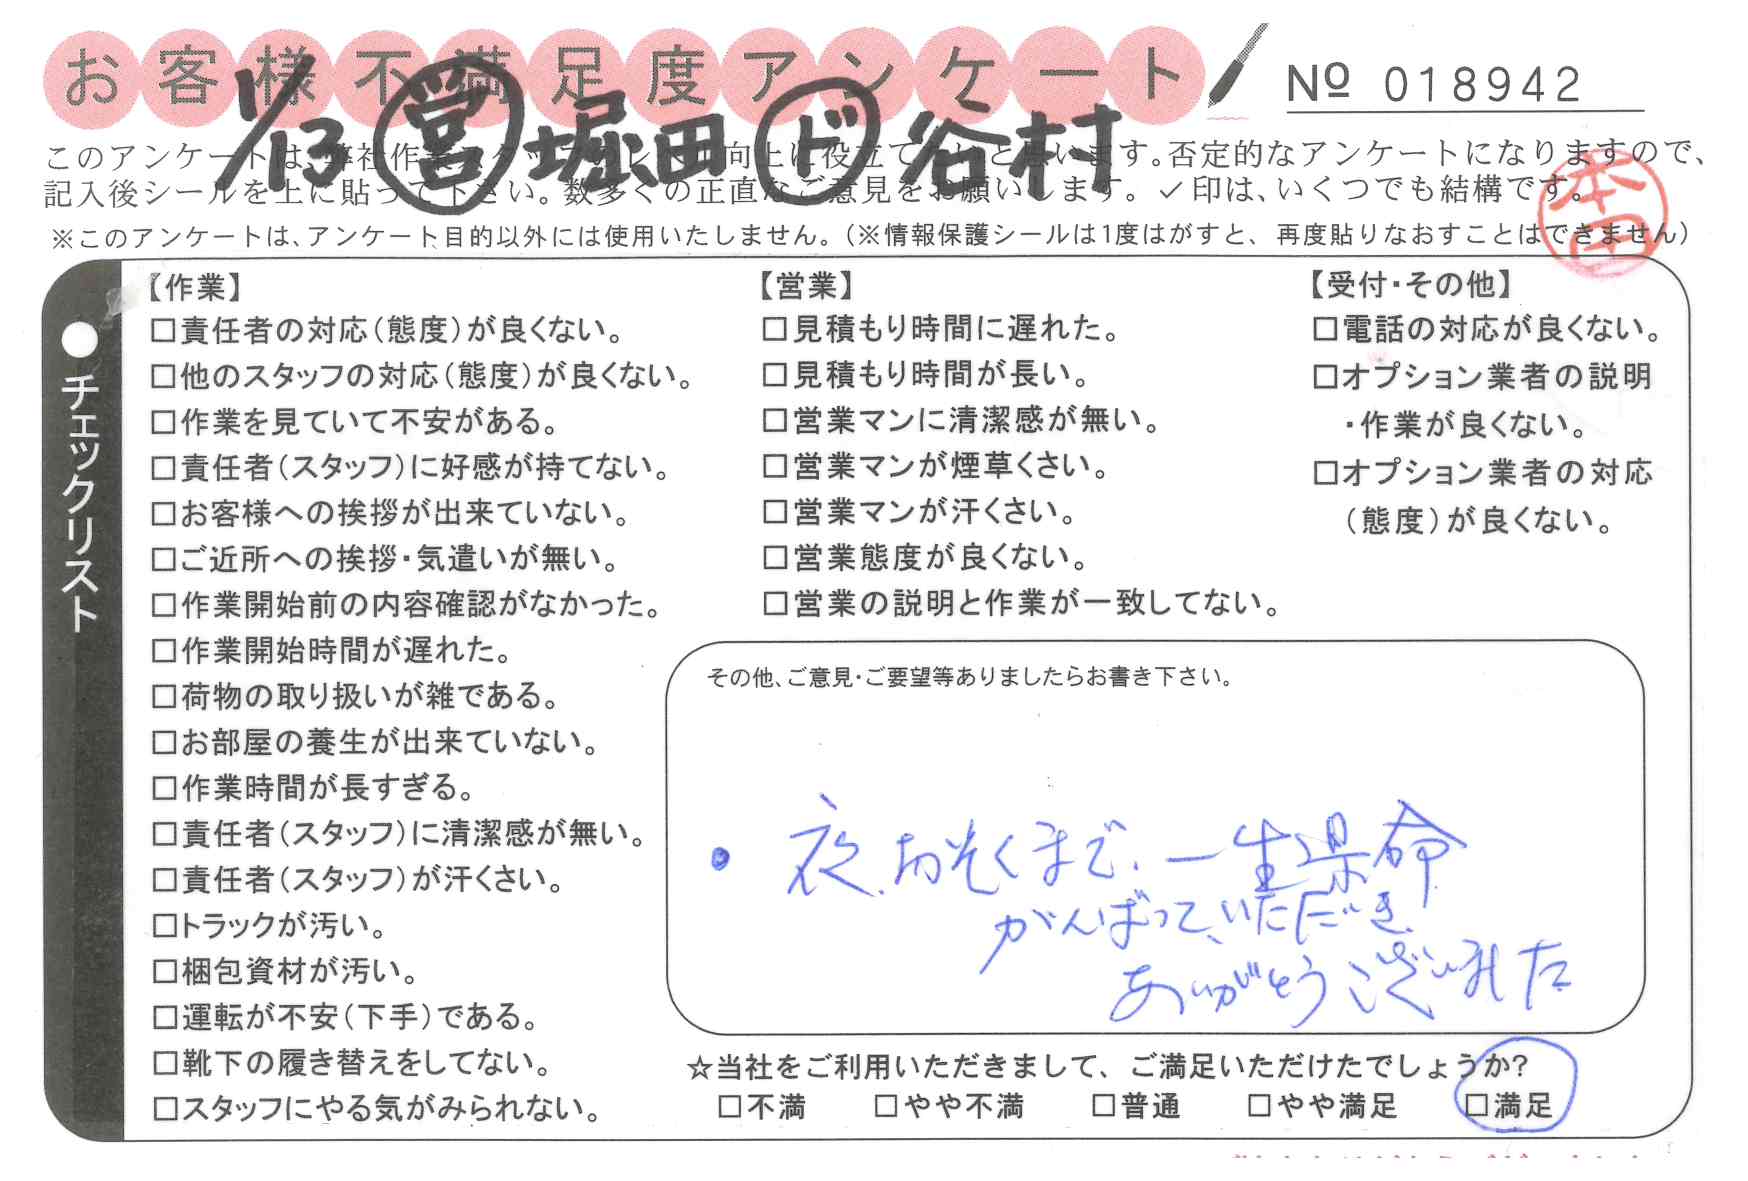 お客様不満足度アンケート
№ 018942
1/13 営 堀田 ド 谷村
このアンケートは、弊社作業スタッフのレベル向上に役立てたいと思います。否定的なアンケートになりますので、
記入後シールを上に貼って下さい。数多くの正直なご意見をお願いします。✓印は、いくつでも結構です。
本田
※このアンケートは、アンケート目的以外には使用いたしません。（※情報保護シールは1度はがすと、再度貼りなおすことはできません）
●チェックリスト
【作業】
□責任者の対応（態度）が良くない。
□他のスタッフの対応（態度）が良くない。
□作業を見ていて不安がある。
□責任者（スタッフ）に好感が持てない。
□お客様への挨拶が出来ていない。
□ご近所への挨拶・気遣いが無い。
□作業開始前の内容確認がなかった。
□作業開始時間が遅れた。
□荷物の取り扱いが雑である。
□お部屋の養生が出来ていない。
□作業時間が長すぎる。
□責任者（スタッフ）に清潔感が無い。
□責任者（スタッフ）が汗くさい。
□トラックが汚い。
□梱包資材が汚い。
□運転が不安（下手）である。
□靴下の履き替えをしてない。
□スタッフにやる気がみられない。
【営業】
□見積もり時間に遅れた。
□見積もり時間が長い。
□営業マンに清潔感が無い。
□営業マンが煙草くさい。
□営業マンが汗くさい。
□営業態度が良くない。
□営業の説明と作業が一致してない。
【受付・その他】
□電話の対応が良くない。
□オプション業者の説明
・作業が良くない。
□オプション業者の対応
（態度）が良くない。
その他、ご意見・ご要望等ありましたらお書き下さい。
・夜、おそくまで、一生県命
がんばって、いただき
ありがとうございました
☆当社をご利用いただきまして、ご満足いただけたでしょうか?
□不満 □やや不満 □普通 □やや満足 □満足